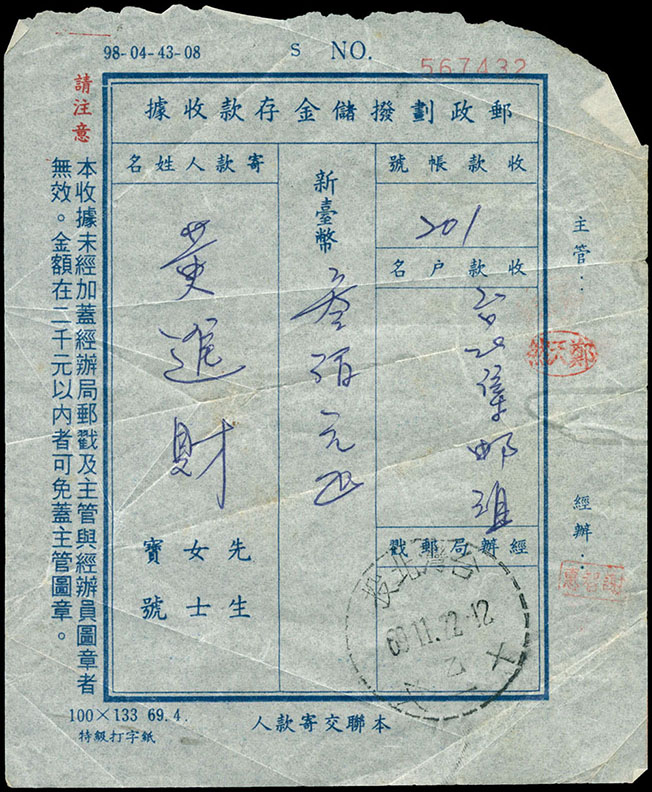 98-04-43-08
S NO.
567432
郵政劃撥儲金存款收據
收款帳號
201
收款户名
台北集邮
經辦局郵戳
台灣北投
69.11.22.12
乙
新臺幣
叁佰元正
寄款人姓名
黄進財
先生
女士
寶號
主管：
經辦：
請注意
本收據未經加蓋經辦局郵戳及主管與經辦員圖章者
無效。金額在二千元以內者可免蓋主管圖章。
100×133 69.4.
特級打字紙
本聯交寄款人